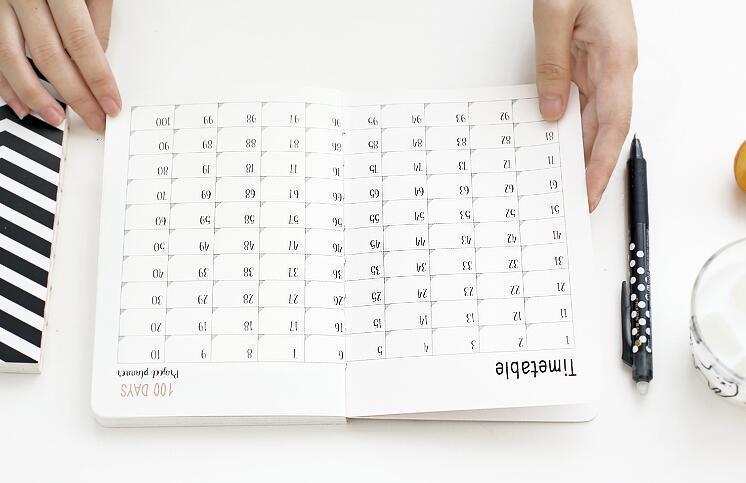 Timetable
100 DAYS
Project planner
1 2 3 4 5 6 7 8 9 10
11 12 13 14 15 16 17 18 19 20
21 22 23 24 25 26 27 28 29 30
31 32 33 34 35 36 37 38 39 40
41 42 43 44 45 46 47 48 49 50
51 52 53 54 55 56 57 58 59 60
61 62 63 64 65 66 67 68 69 70
71 72 73 74 75 76 77 78 79 80
81 82 83 84 85 86 87 88 89 90
92 93 94 95 96 97 98 99 100